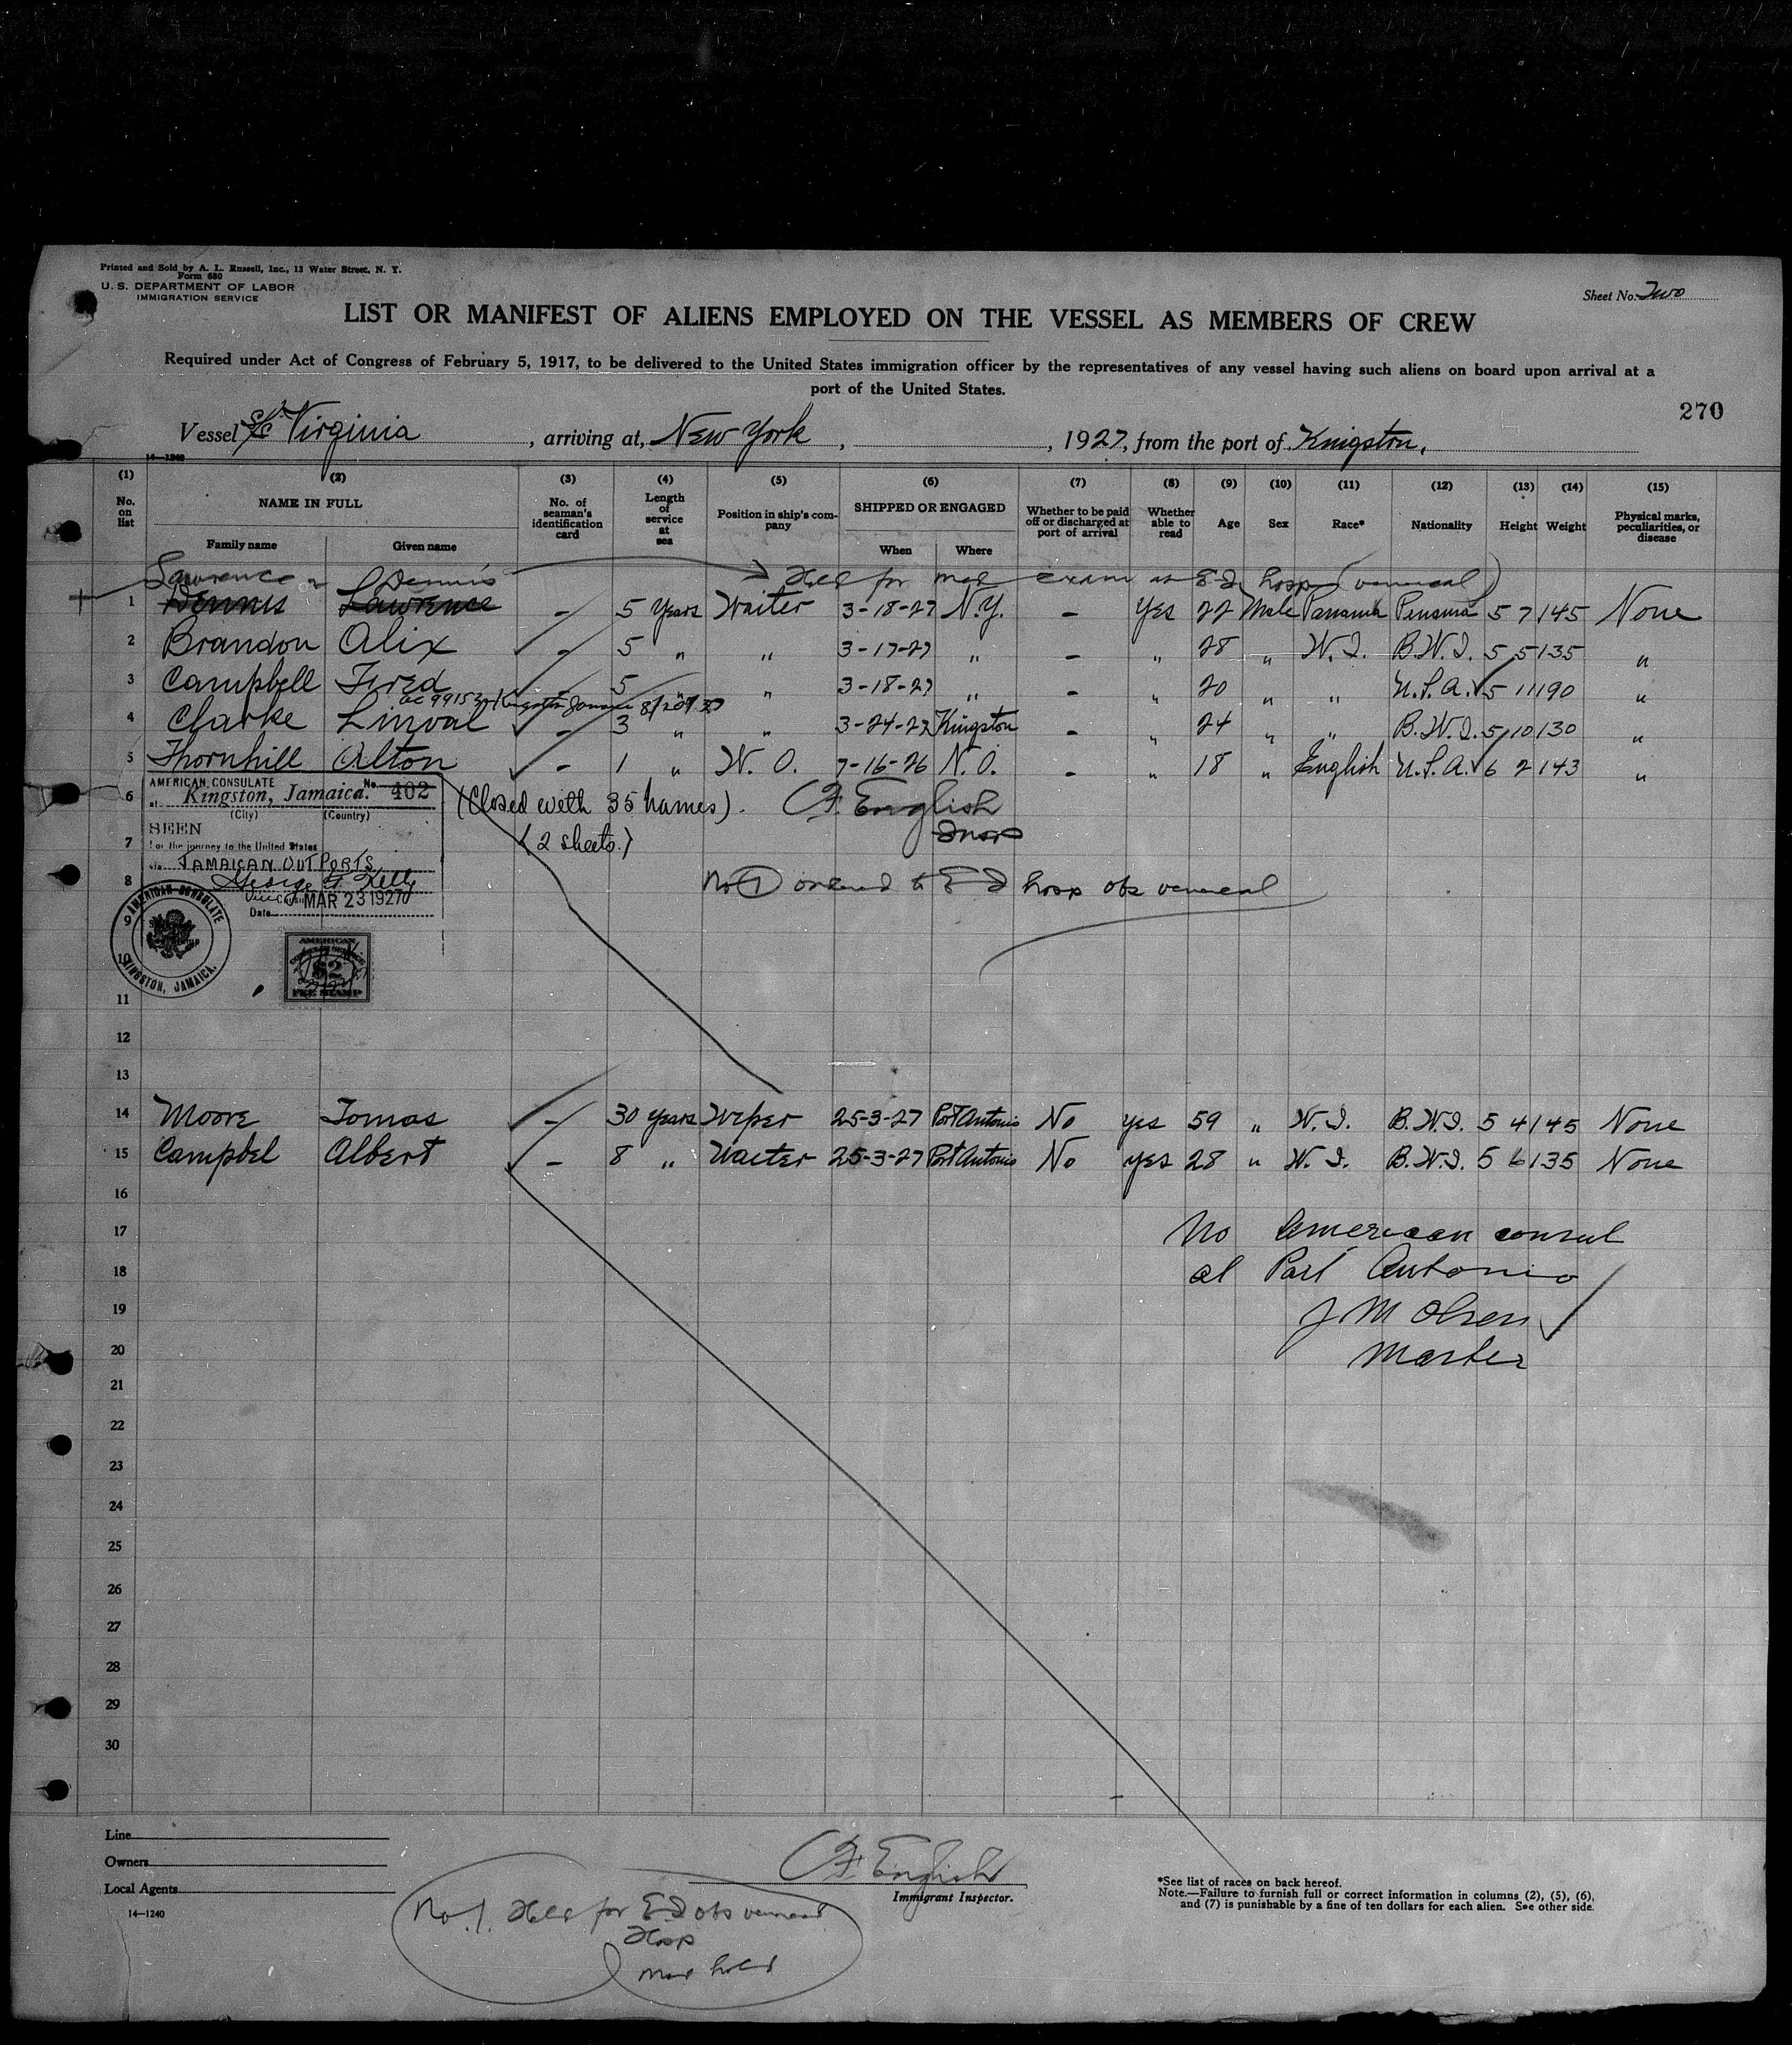 Printed and Sold by A. L. Russell, Inc., 13 Water Street, N. Y.
Form 680
U. S. DEPARTMENT OF LABOR
IMMIGRATION SERVICE
Sheet No. Two
LIST OR MANIFEST OF ALIENS EMPLOYED ON THE VESSEL AS MEMBERS OF CREW
Required under Act of Congress of February 5, 1917, to be delivered to the United States immigration officer by the representatives of any vessel having such aliens on board upon arrival at a
port of the United States.
270
Vessel Virginia, arriving at, New York, , 1927, from the port of Kingston,
14—1240
(1) (2) (3) (4) (5) (6) (7) (8) (9) (10) (11) (12) (13) (14) (15)
No. on list NAME IN FULL No. of seaman's identification card Length of service at sea Position in ship's company SHIPPED OR ENGAGED Whether to be paid off or discharged at port of arrival Whether able to read Age Sex Race* Nationality Height Weight Physical marks, peculiarities, or disease
Family name Given name When Where
Lawrence Dennis Held for med exam at E-I hosp (venereal)
1 Dennis Lawrence - 5 Years Waiter 3-18-27 N.Y. - Yes 22 Male Panama Penama 5 7 145 None
2 Brandon Alix - 5 " " 3-17-27 " - " 28 " W.I. B.W.I. 5 5 135 "
3 Campbell Fred - 5 " " 3-18-27 " - " 20 " " U.S.A. 5 11 190 "
Kingston Jamaica
4 Clarke Linval - 3 " " 3-24-27 Kingston - " 24 " " B.W.I. 5 10 130 "
5 Thornhill Alton - 1 " W. O. 7-16-26 N.O. - " 18 " English U.S.A. 6 2 143 "
AMERICAN CONSULATE No. 402
6 at Kingston, Jamaica. (Closed with 35 names). English
(City) (Country)
SEEN Insp
7 For the journey to the United States (2 sheets.)
via JAMAICAN OUTPORTS
8 George No (1) ordered to E I hosp obs venereal
Date MAR 23 1927
9 AMERICAN CONSULATE
10 KINGSTON, JAMAICA.
AMERICAN
$2
FEE STAMP
11
12
13
14 Moore Tomas - 30 years Wiper 25-3-27 Port Antonio No yes 59 " W.I. B.W.I. 5 4 145 None
15 Campbel Albert - 8 " Waiter 25-3-27 Port Antonio No yes 28 " W. I. B.W.I. 5 6 135 None
16
17 No American consul
18 at Port Antonio
19 J M Olsen
20 Master
21
22
23
24
25
26
27
28
29
30
Line
Owners
Local Agents
14—1240
English
Immigrant Inspector.
*See list of races on back hereof.
Note.—Failure to furnish full or correct information in columns (2), (5), (6),
and (7) is punishable by a fine of ten dollars for each alien. See other side.
No. 1. Held for E I obs venereal
Hosp
Med hold